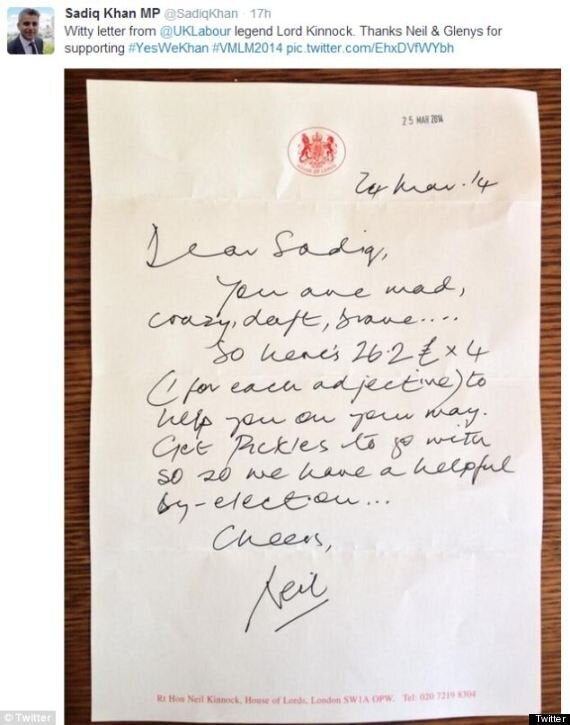 Sadiq Khan MP @SadiqKhan · 17h
Witty letter from @UKLabour legend Lord Kinnock. Thanks Neil & Glenys for
supporting #YesWeKhan #VMLM2014 pic.twitter.com/EhxDVfWYbh
25 MAR 2014
HOUSE OF LORDS
24 Mar. '14
Dear Sadiq,
You are mad,
crazy, daft, brave....
So here's 26.2 £ x 4
(1 for each adjective) to
help you on your way.
Get Pickles to go with
so we have a helpful
by-election...
Cheers,
Neil
Rt Hon Neil Kinnock, House of Lords, London SW1A 0PW. Tel: 020 7219 8304
© Twitter
Twitter